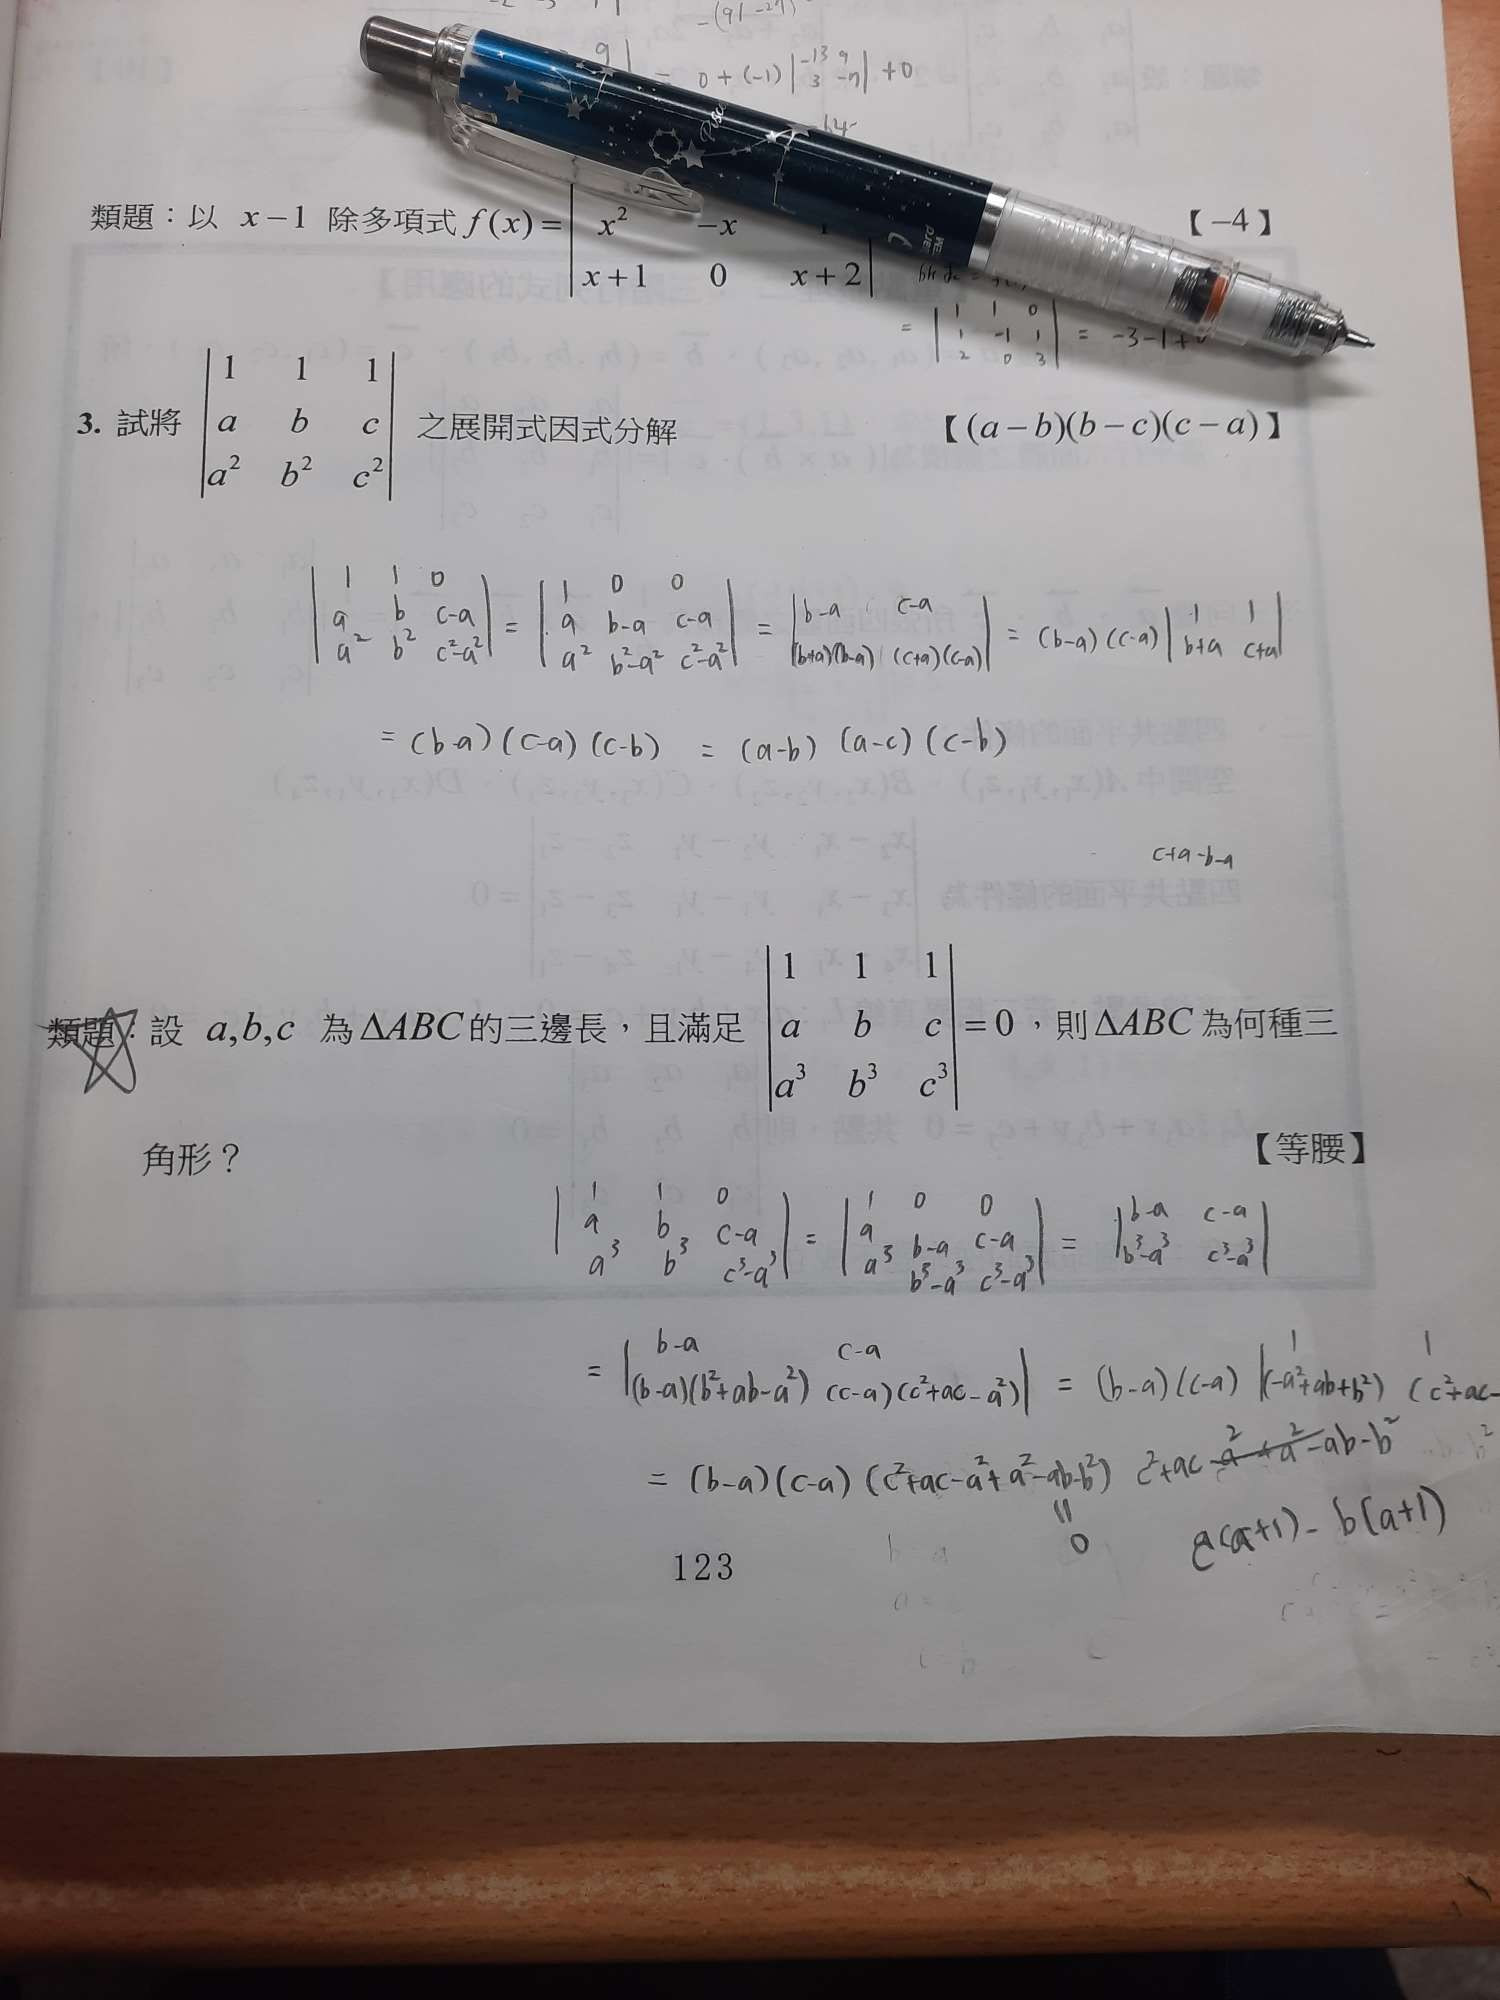 -(91-27)
9| = 0+(-1)|-13 9
3 -7|+0
類題：以 x-1 除多項式 f(x)=| x² -x
x+1 0 x+2 |
【-4】
= | 1 1 0
1 -1 1
2 0 3 | = -3-1+0
3. 試將 | 1 1 1
a b c
a² b² c² | 之展開式因式分解 【(a-b)(b-c)(c-a)】
| 1 1 0
a b c-a
a² b² c²-a² | = | 1 0 0
a b-a c-a
a² b²-a² c²-a² | = | b-a c-a
(b+a)(b-a) (c+a)(c-a) | = (b-a)(c-a) | 1 1
b+a c+a |
= (b-a)(c-a)(c-b) = (a-b)(a-c)(c-b)
c+a-b-a
類題：設 a,b,c 為 ΔABC 的三邊長，且滿足 | 1 1 1
a b c
a³ b³ c³ | =0，則 ΔABC 為何種三
角形？ 【等腰】
| 1 1 0
a b c-a
a³ b³ c³-a³ | = | 1 0 0
a b-a c-a
a³ b³-a³ c³-a³ | = | b-a c-a
b³-a³ c³-a³ |
= | b-a c-a
(b-a)(b²+ab-a²) (c-a)(c²+ac-a²) | = (b-a)(c-a) | 1 1
(-a²+ab+b²) (c²+ac-
= (b-a)(c-a)(c²+ac-a²+a²-ab-b²) c²+ac-a²+a²-ab-b²
=
0
c(a+1)-b(a+1)
123